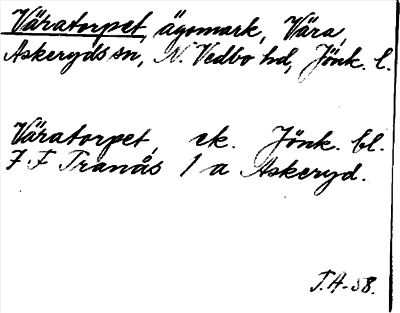 Väratorpet, ägomark, Vära,
Askeryds sn, N. Vedbo hd, Jönk. l.
Väratorpet, ek. Jönk. bl.
7 F Tranås 1 a Askeryd.
T.A-58.